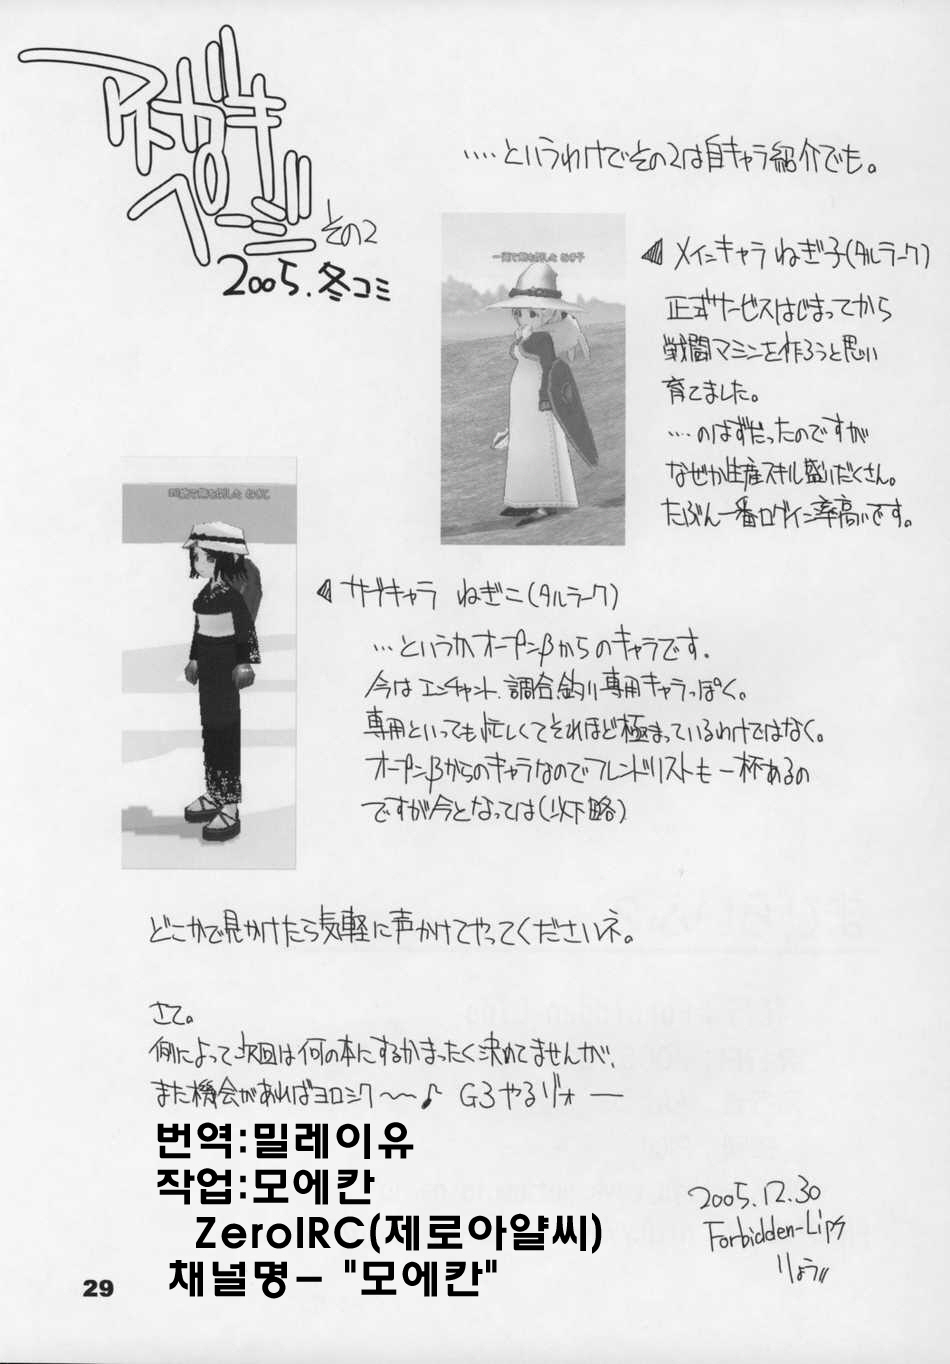 アトガキ
ページ
その2
2005.冬コミ
・・・・というわけでその2は自キャラ紹介でも。
メインキャラ ねぎ子(タルラーク)
正式サービスはじまってから
戦闘マシンを作ろうと思い
育てました。
・・・・のはずだったのですが
なぜか生産スキル盛りだくさん。
たぶん一番ログイン率高いです。
サブキャラ ねぎこ(タルラーク)
・・・というかオープンβからのキャラです。
今はエンチャント、調合、釣り専用キャラっぽく。
専用といっても忙しくてそれほど極まっているわけではなく。
オープンβからのキャラなのでフレンドリストも一杯あるの
ですが今となっては(以下略)
どこかで見かけたら気軽に声かけてやってくださいネ。
さて。
例によって次回は何の本にするかまったく決めてませんが、
また機会があればヨロシク〜〜♪ G3やるゾォー
번역:밀레이유
작업:모에칸
ZeroIRC(제로아얄씨)
채널명- "모에칸"
2005.12.30
Forbidden-Lips
りょう
29